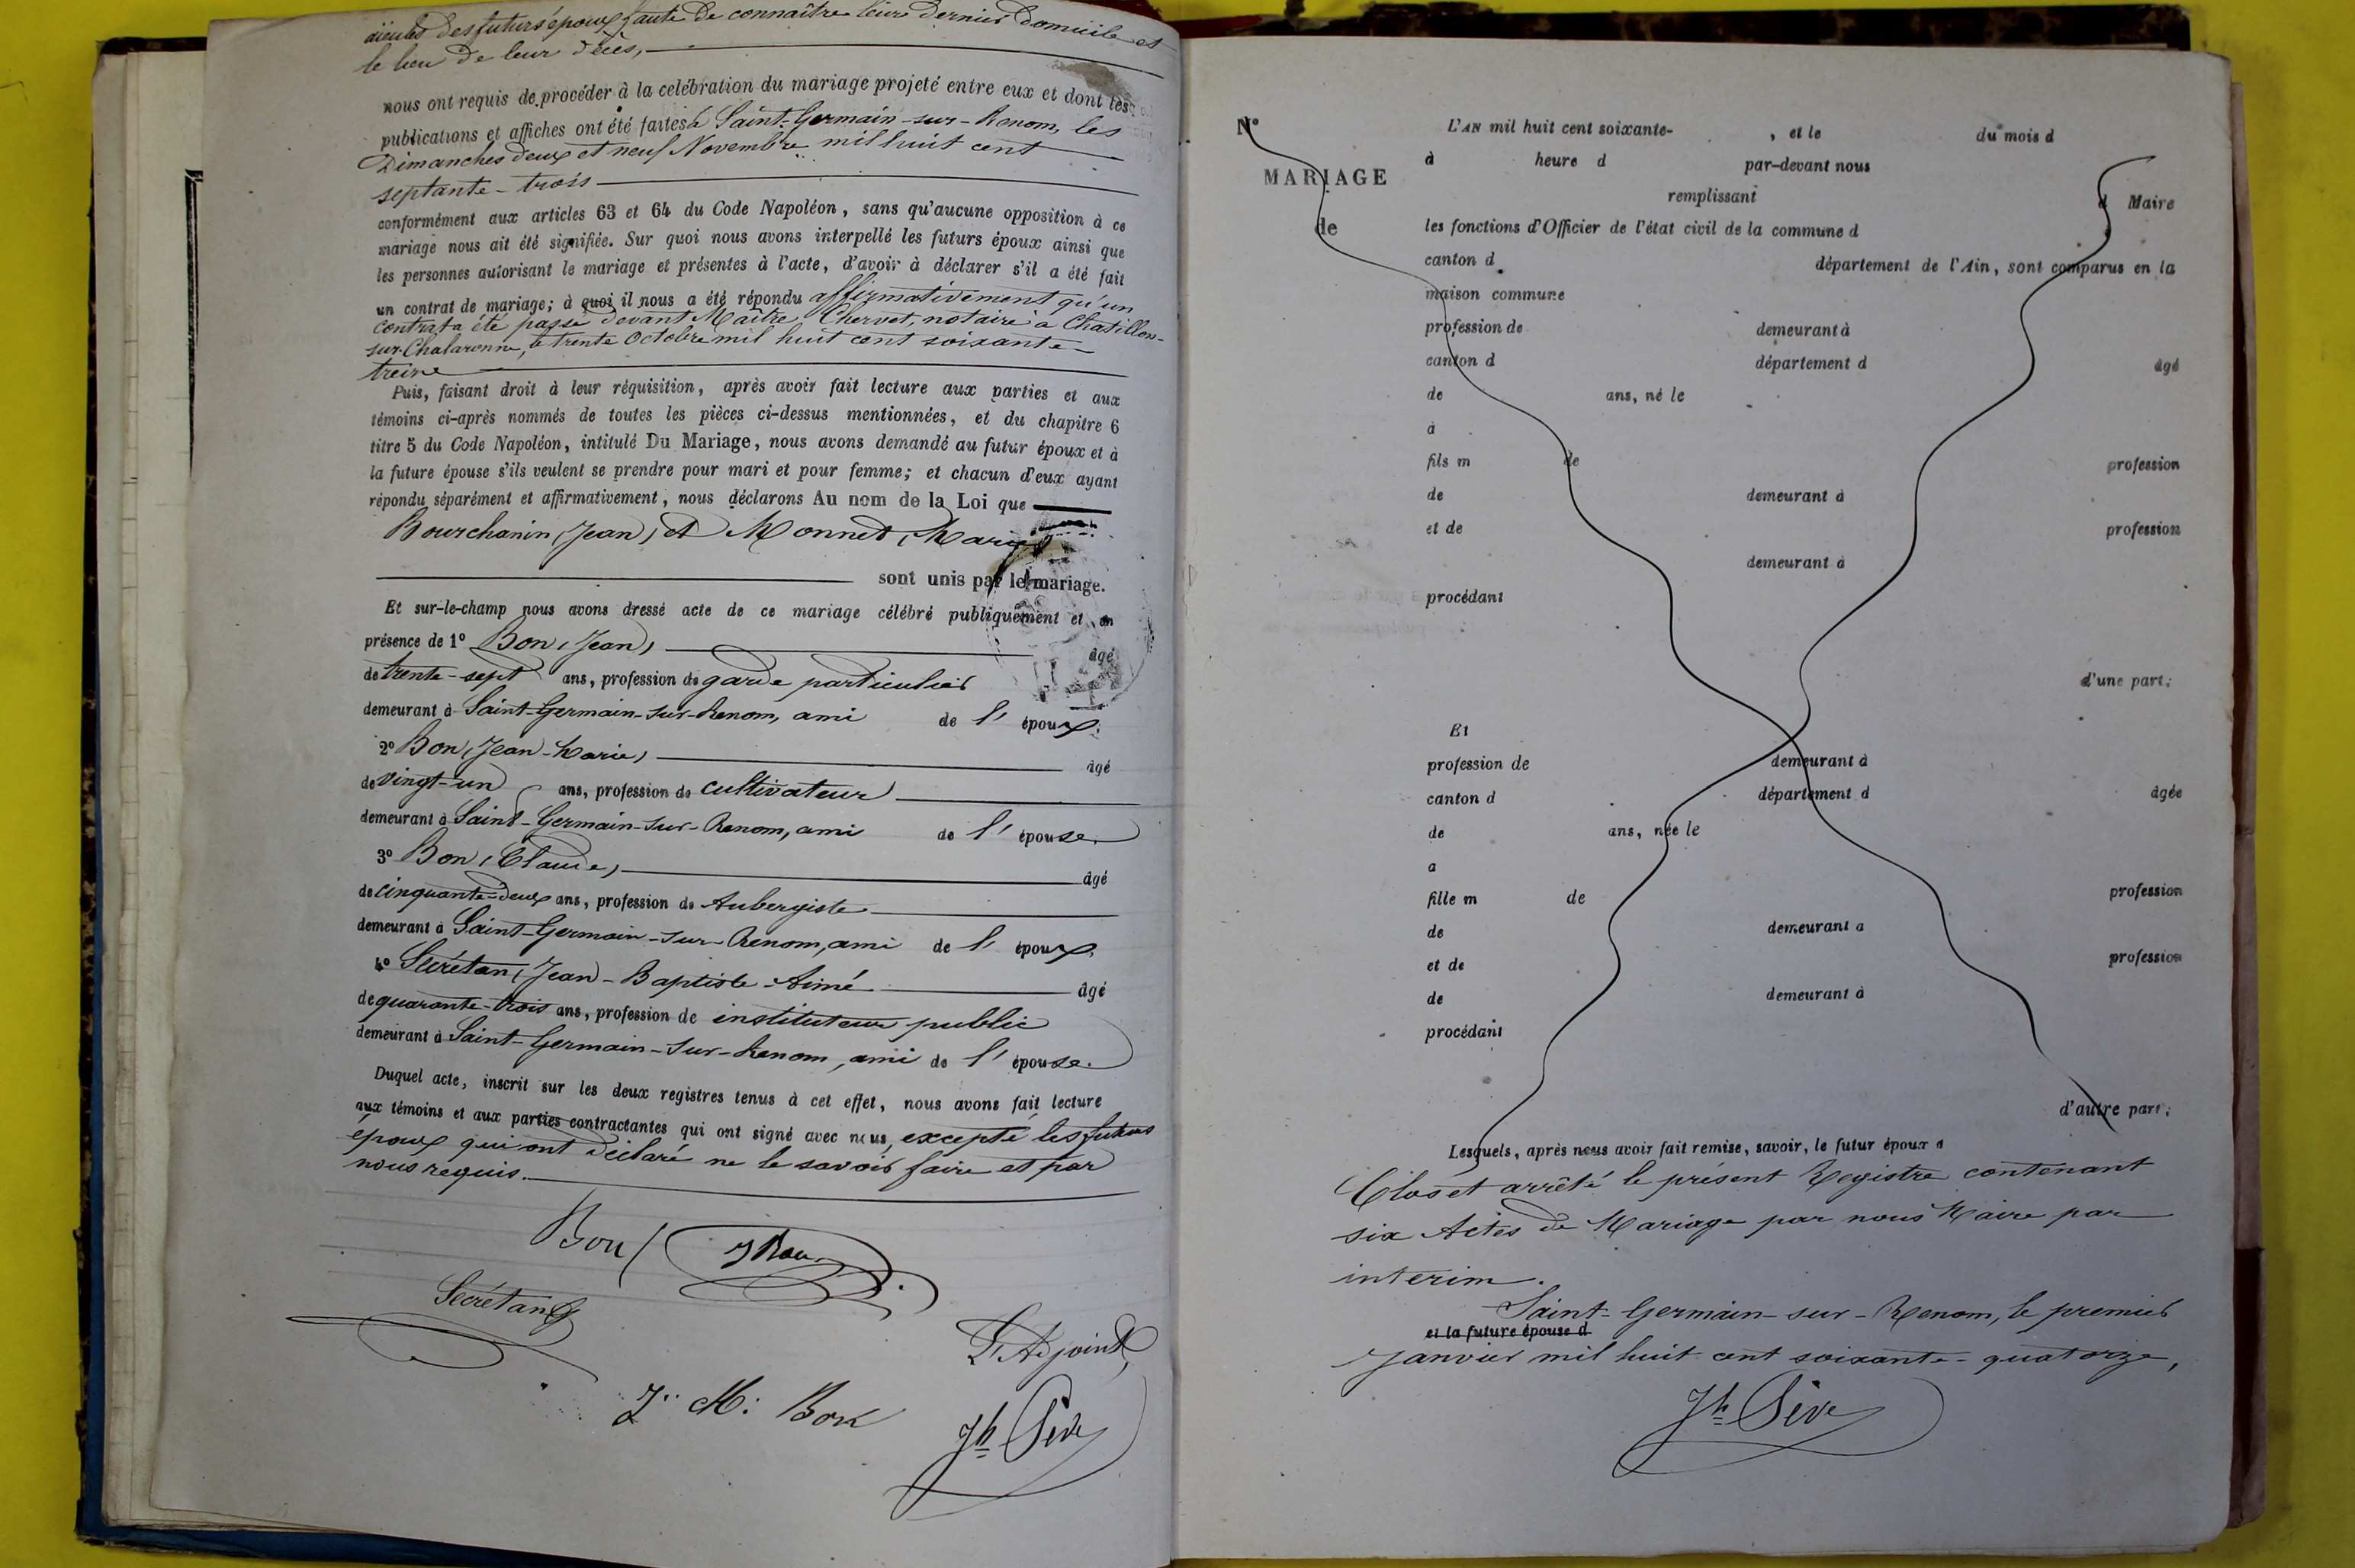 aïeules des futurs époux faute de connaître leur dernier domicile et
le lieu de leur décès,
nous ont requis de procéder à la celébration du mariage projeté entre eux et dont les
publications et affiches ont été faites à Saint-Germain-sur-Renom, les
Dimanches deux et neuf Novembre mil huit cent
septante-trois
conformément aux articles 63 et 64 du Code Napoléon, sans qu'aucune opposition à ce
mariage nous ait été signifiée. Sur quoi nous avons interpellé les futurs époux ainsi que
les personnes autorisant le mariage et présentes à l'acte, d'avoir à déclarer s'il a été fait
un contrat de mariage; à quoi il nous a été répondu affirmativement qu'un
contrat a été passé devant Maître Chervet, notaire à Chatillon-
sur-Chalaronne, le trente Octobre mil huit cent soixante-
treize
Puis, faisant droit à leur réquisition, après avoir fait lecture aux parties et aux
témoins ci-après nommés de toutes les pièces ci-dessus mentionnées, et du chapitre 6
titre 5 du Code Napoléon, intitulé Du Mariage, nous avons demandé au futur époux et à
la future épouse s'ils veulent se prendre pour mari et pour femme; et chacun d'eux ayant
répondu séparément et affirmativement, nous déclarons Au nom de la Loi que
Bourchanin (Jean) et Monnet (Marie)
sont unis par le mariage.
Et sur-le-champ nous avons dressé acte de ce mariage célébré publiquement et en
présence de 1° Bon (Jean) âgé
de trente-sept ans, profession de garde particulier
demeurant à Saint-Germain-sur-Renom, ami de l'époux.
2° Bon (Jean-Marie) âgé
de vingt-un ans, profession de cultivateur
demeurant à Saint-Germain-sur-Renom, ami de l'épouse.
3° Bon (Claude) âgé
de cinquante-deux ans, profession de Aubergiste
demeurant à Saint-Germain-sur-Renom, ami de l'époux
4° Secrétan (Jean-Baptiste-Aimé âgé
de quarante-trois ans, profession de instituteur public
demeurant à Saint-Germain-sur-Renom, ami de l'épouse.
Duquel acte, inscrit sur les deux registres tenus à cet effet, nous avons fait lecture
aux témoins et aux parties contractantes qui ont signé avec nous, excepté les futurs
époux qui ont déclaré ne le savoir faire et par
nous requis.
Bon J Bon
Secrétan
L'Adjoint,
J. M. Bon
Jh Sève
N°
MARIAGE
de
L'AN mil huit cent soixante- , et le du mois d
à heure d par-devant nous
remplissant
d Maire
les fonctions d'Officier de l'état civil de la commune d
canton d département de l'Ain, sont comparus en la
maison commune
profession de demeurant à
canton d département d âgé
de ans, né le
à
fils m de profession
de demeurant à
et de profession
demeurant à
procédant
d'une part;
Et
profession de demeurant à
canton d département d âgée
de ans, née le
a
fille m de profession
de demeurant a
et de profession
de demeurant à
procédant
d'autre part;
Lesquels, après nous avoir fait remise, savoir, le futur époux d
Clos et arrêté le présent Registre contenant
six Actes de Mariage par nous Maire par
interim.
Saint-Germain-sur-Renom, le premier
et la future épouse d
Janvier mil huit cent soixante-quatorze,
Jh Sève